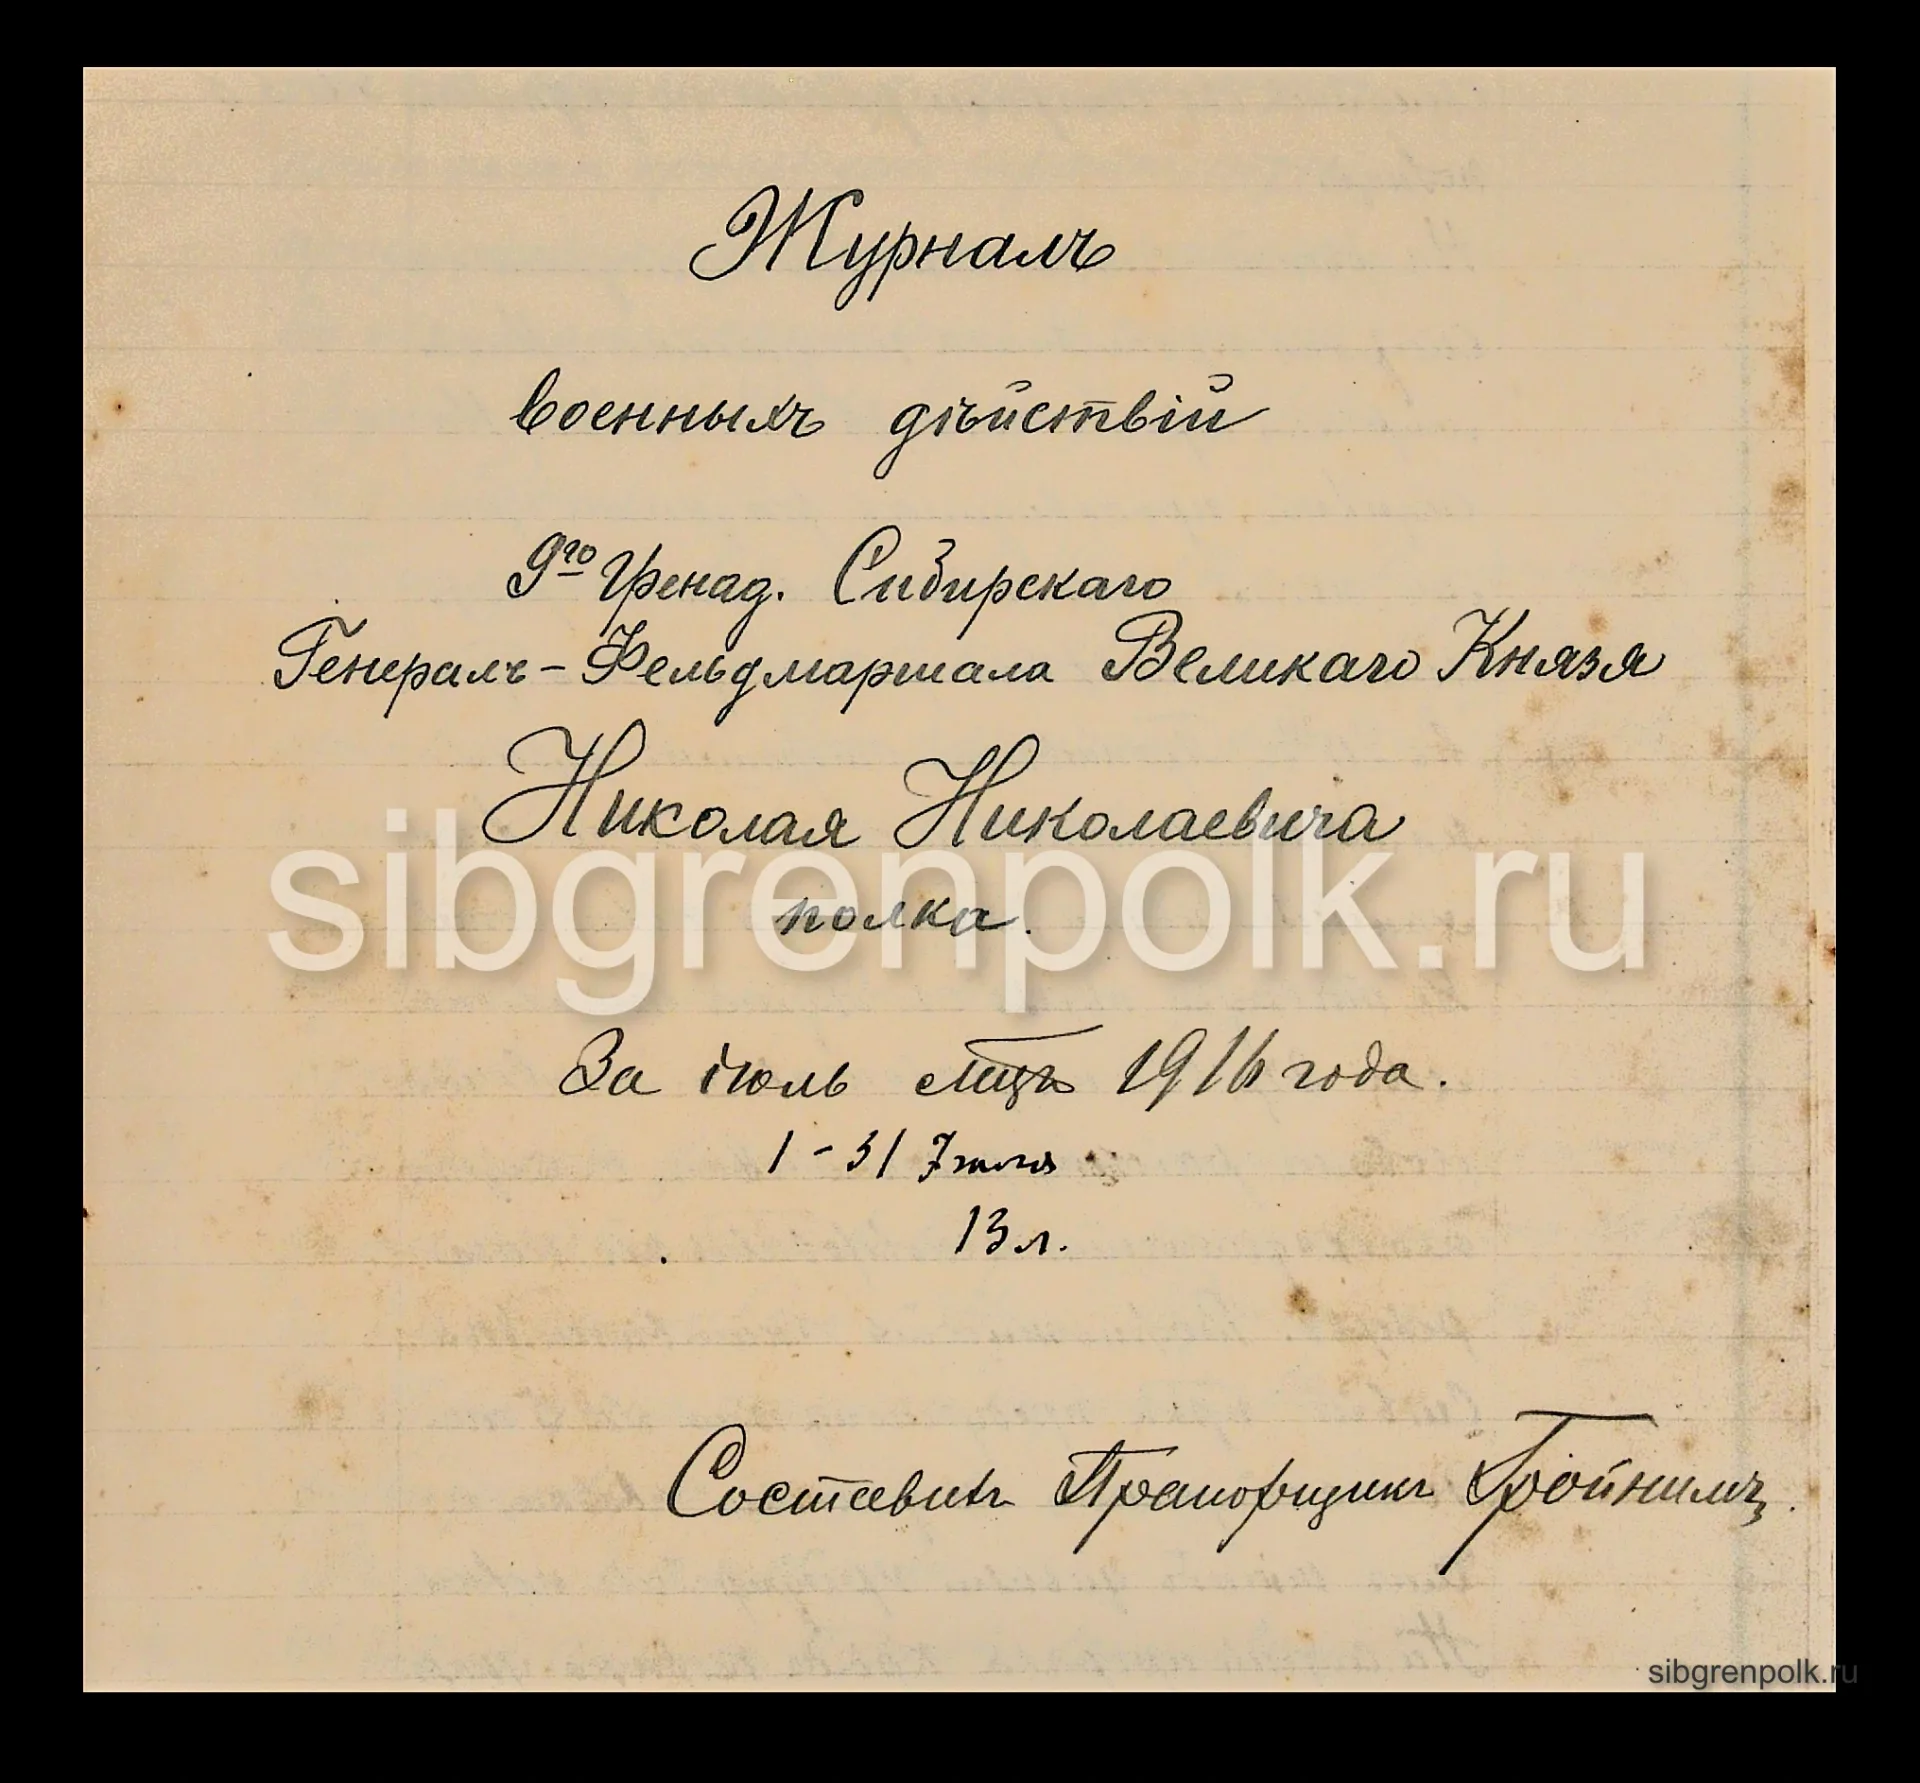 Журналъ
военныхъ дѣйствій
9го Гренад. Сибирскаго
Генералъ-Фельдмаршала Великаго Князя
Николая Николаевича
полка.
sibgrenpolk.ru
За іюль мцъ 1916 года.
1-31 Июля
13 л.
Составилъ Прапорщикъ
sibgrenpolk.ru